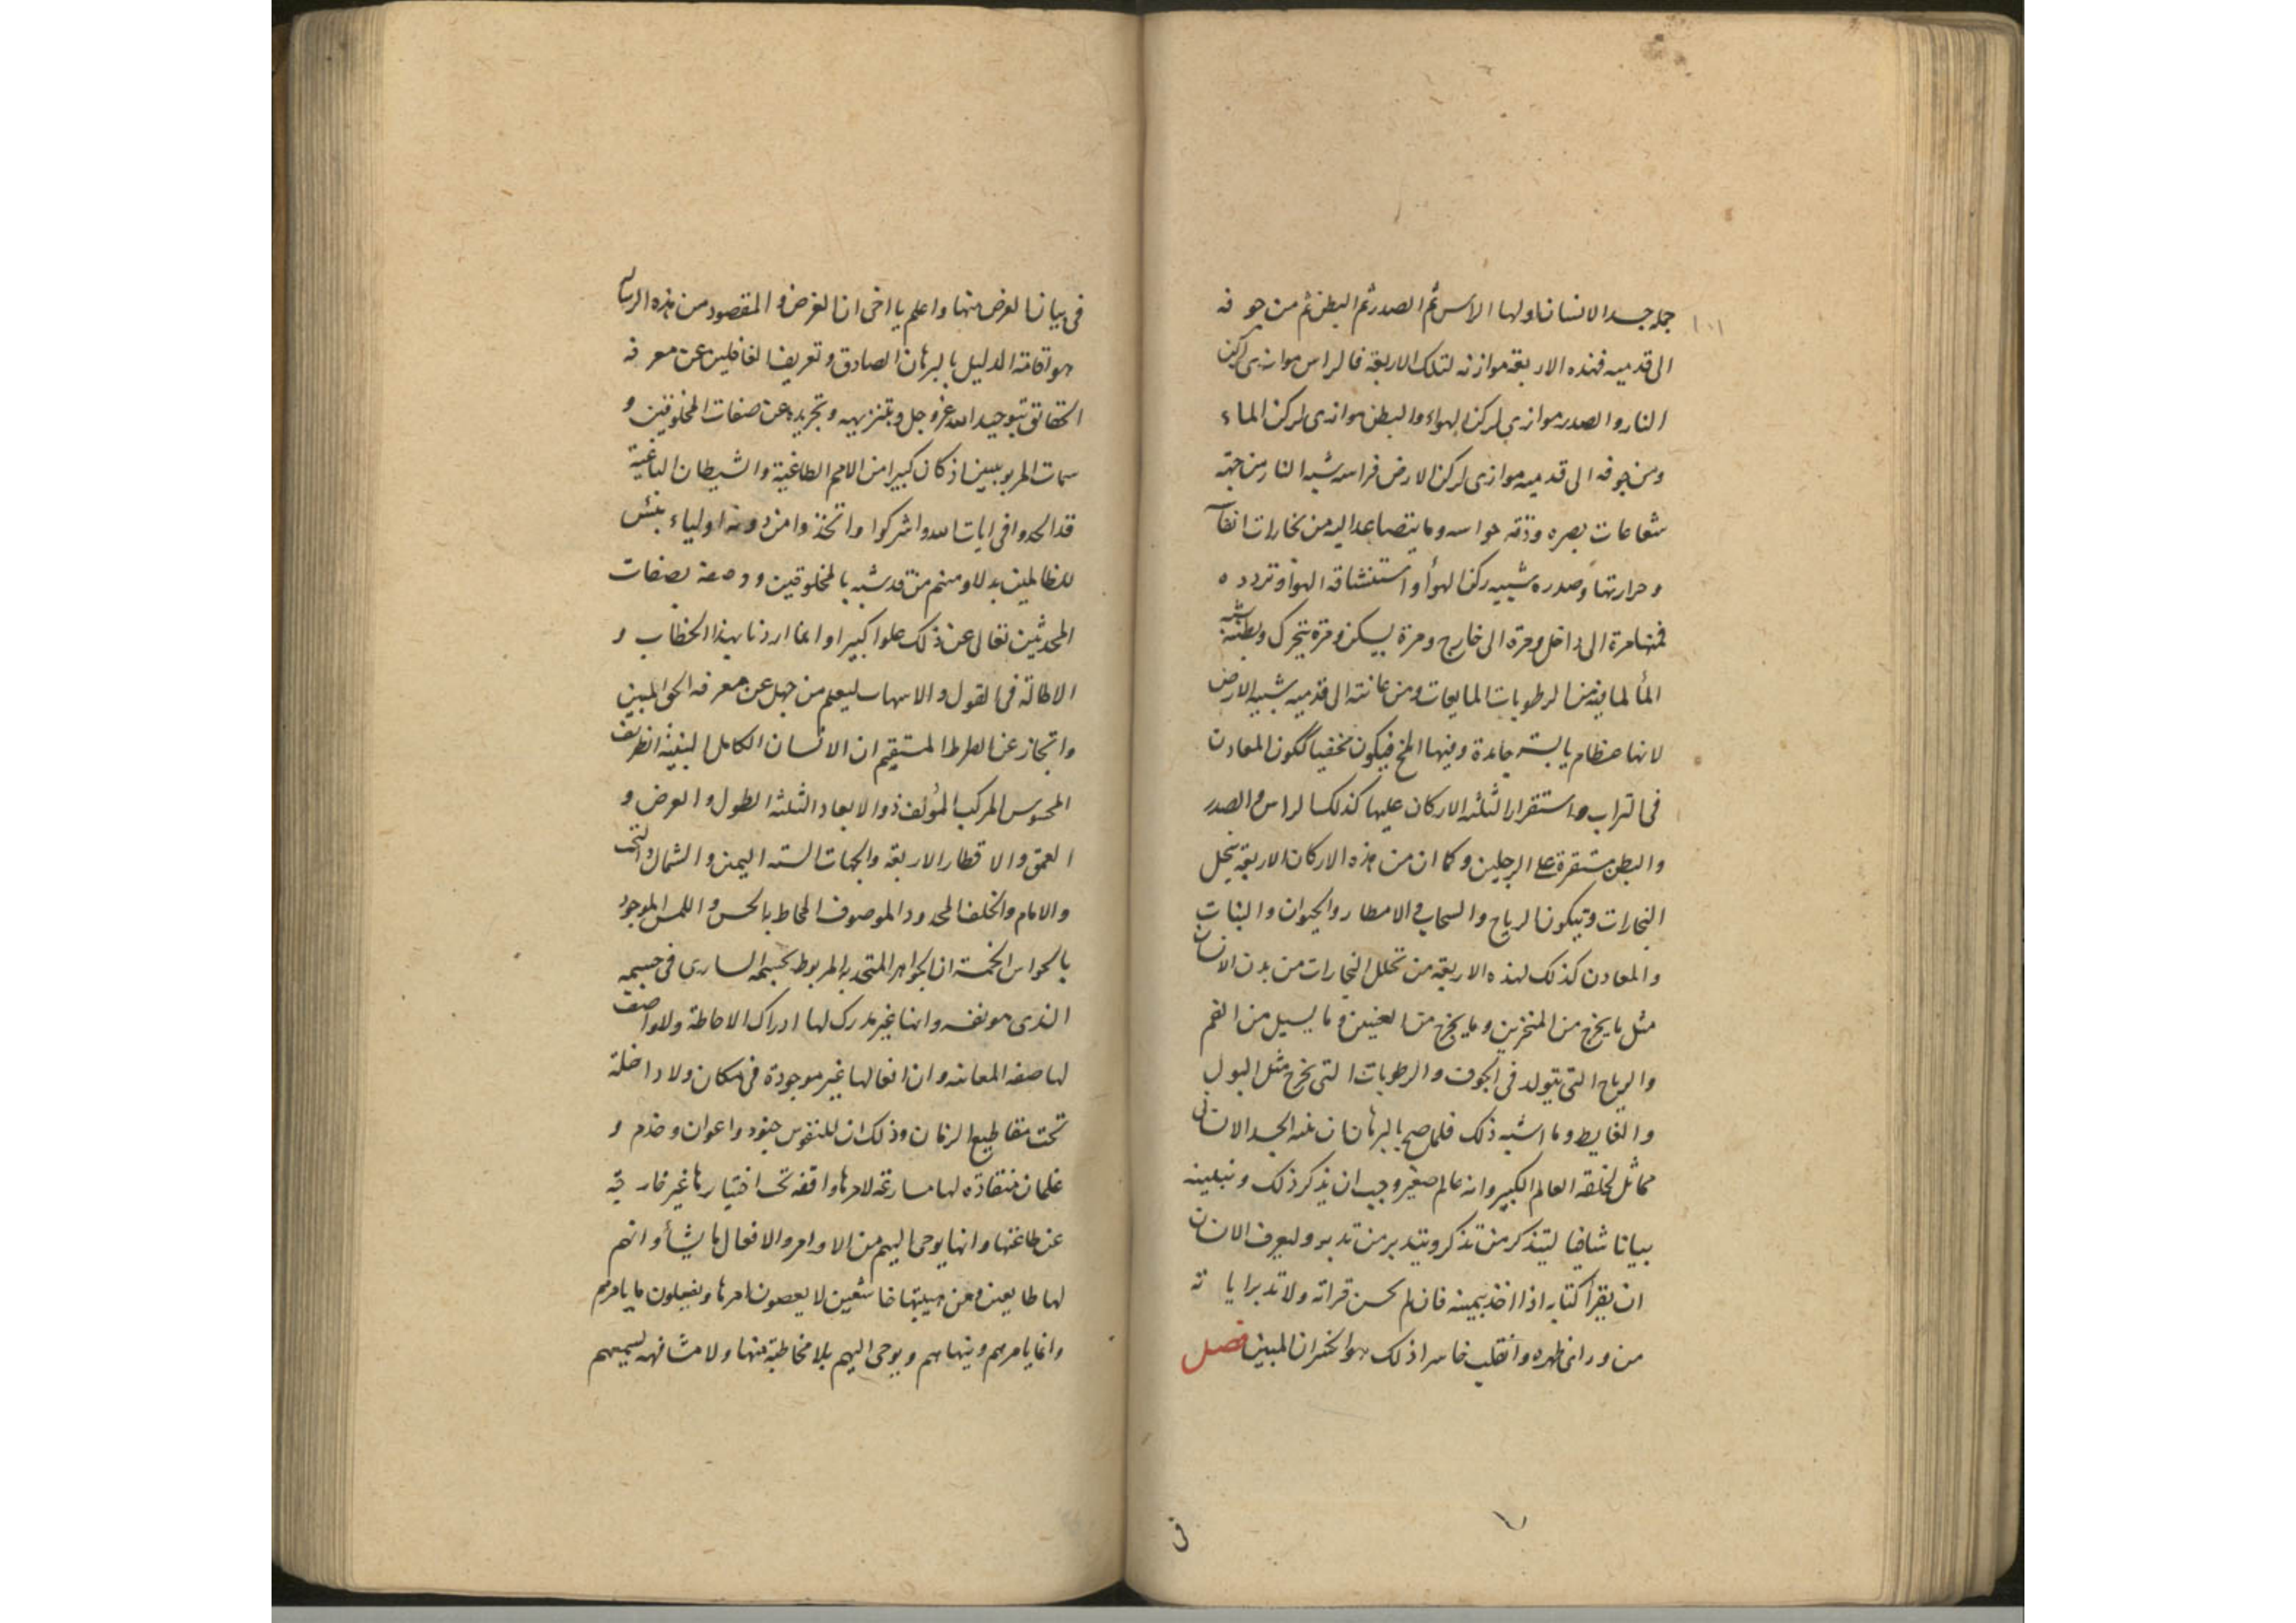 ١٠١
جملة جسد الانسان اولها الراس ثم الصدر ثم البطن ثم من جوفه
الى قدميه فهذه الاربعة موازنه لتلك الاربعة فالراس موازى لركن
النار والصدر موازى لركن الهواء والبطن موازى لركن الماء
ومن جوفه الى قدميه موازى لركن الارض فراسه شبه النار من جهة
شعاعات بصره وذقه حواسه وما يتصاعد اليه من بخارات
وحرارتها وصدره شبيه ركن الهوأ واستنشاقه الهوأ وتردده
فمنها مرة الى داخل ومرة الى خارج ومرة يسكن ومرة يتحرك وبطنه شبه
المأ لما فيه من الرطوبات المايعات ومن عانته الى قدميه شبيه الارض
لانها عظام يابسة جامدة وفيها المخ فيكون مخفيا ككون المعادن
فى التراب واستقرار الثلثه الاركان عليها كذلك الراس والصدر
والبطن مستقرة على الرجلين وكما ان من هذه الاركان الاربعة يتحلل
البخارات ويتكون الرياح والسحاب والامطار والحيوان والنبات
والمعادن كذلك لهذه الاربعة من تحلل البخارات من بدن الانسان
مثل ما يخرج من المنخرين وما يخرج من العينين وما يسيل من الفم
والرياح التى يتولد فى الجوف والرطوبات التى تخرج مثل البول
والغايط وما اشبه ذلك فلما صح بالبرهان ان بنيه الجسد الانسانى
مماثل لخلقة العالم الكبير وانه عالم صغير وجب ان نذكر ذلك ونبينه
بيانا شافيا ليتذكر من تذكر ويتدبر من تدبر وليعرف الانسان
ان يقرأ كتابه اذا اخذ بيمينه فان لم يحسن قراته ولا تدبر اياته
من وراى ظهره وانقلب خاسرا ذلك هو الخسران المبين فصل
فى
فى بيان الغرض منها واعلم يا اخى ان الغرض والمقصود من هذه الرسالة
هو اقامة الدليل بالبرهان الصادق وتعريف الغافلين عن معرفه
الحقائق بتوحيد الله عز وجل وبتنزيهه وتجريده عن صفات المخلوقين و
سمات المربوبين اذ كان كبيرا من الامم الطاغية والشيطان الباغية
قد الحدوا فى ايات الله واشركوا واتخذوا من دونه اولياء بئس
للظالمين بدلا ومنهم من قد شبه بالمخلوقين ووصفه بصفات
المحدثين تعالى عن ذلك علوا كبيرا وانما اردنا بهذا الخطاب و
الاطالة فى القول والاسهاب ليعلم من جهل عن معرفه الحق المبين
وانجاز عن الصراط المستقيم ان الانسان الكامل البنية الظريف
المحسوس المركب المؤلف ذو الابعاد الثلثه الطول والعرض و
العمق والاقطار الاربعة والجهات الستة اليمين والشمال والتحت
والامام والخلف المحدود الموصوف المحاط بالحس واللمس الموجود
بالحواس الخمسة ان الجواهر المتحد به المربوط بجسمه السارى فى جسمه
الذى هو نفسه وانها غير مدرك لها ادراك الاحاطة ولا واصف
لها صفه المعاينه وان افعالها غير موجودة فى مكان ولا داخلة
تحت مقاطيع الزمان وذلك ان للنفوس جنود واعوان وخدم و
غلمان منقادة لها مسارعة لامرها واقفه تحت اختيارها غير خارقة
عن طاعتها وانها يوحى اليهم من الاوامر والافعال ما يشأ وانهم
لها طايعين ومن هيبتها خاشعين لا يعصون امرها ويفعلون ما يامرهم
وانما يامرهم وينهاهم ويوحى اليهم بلا مخاطبة منها ولا مشافهة لسمعهم